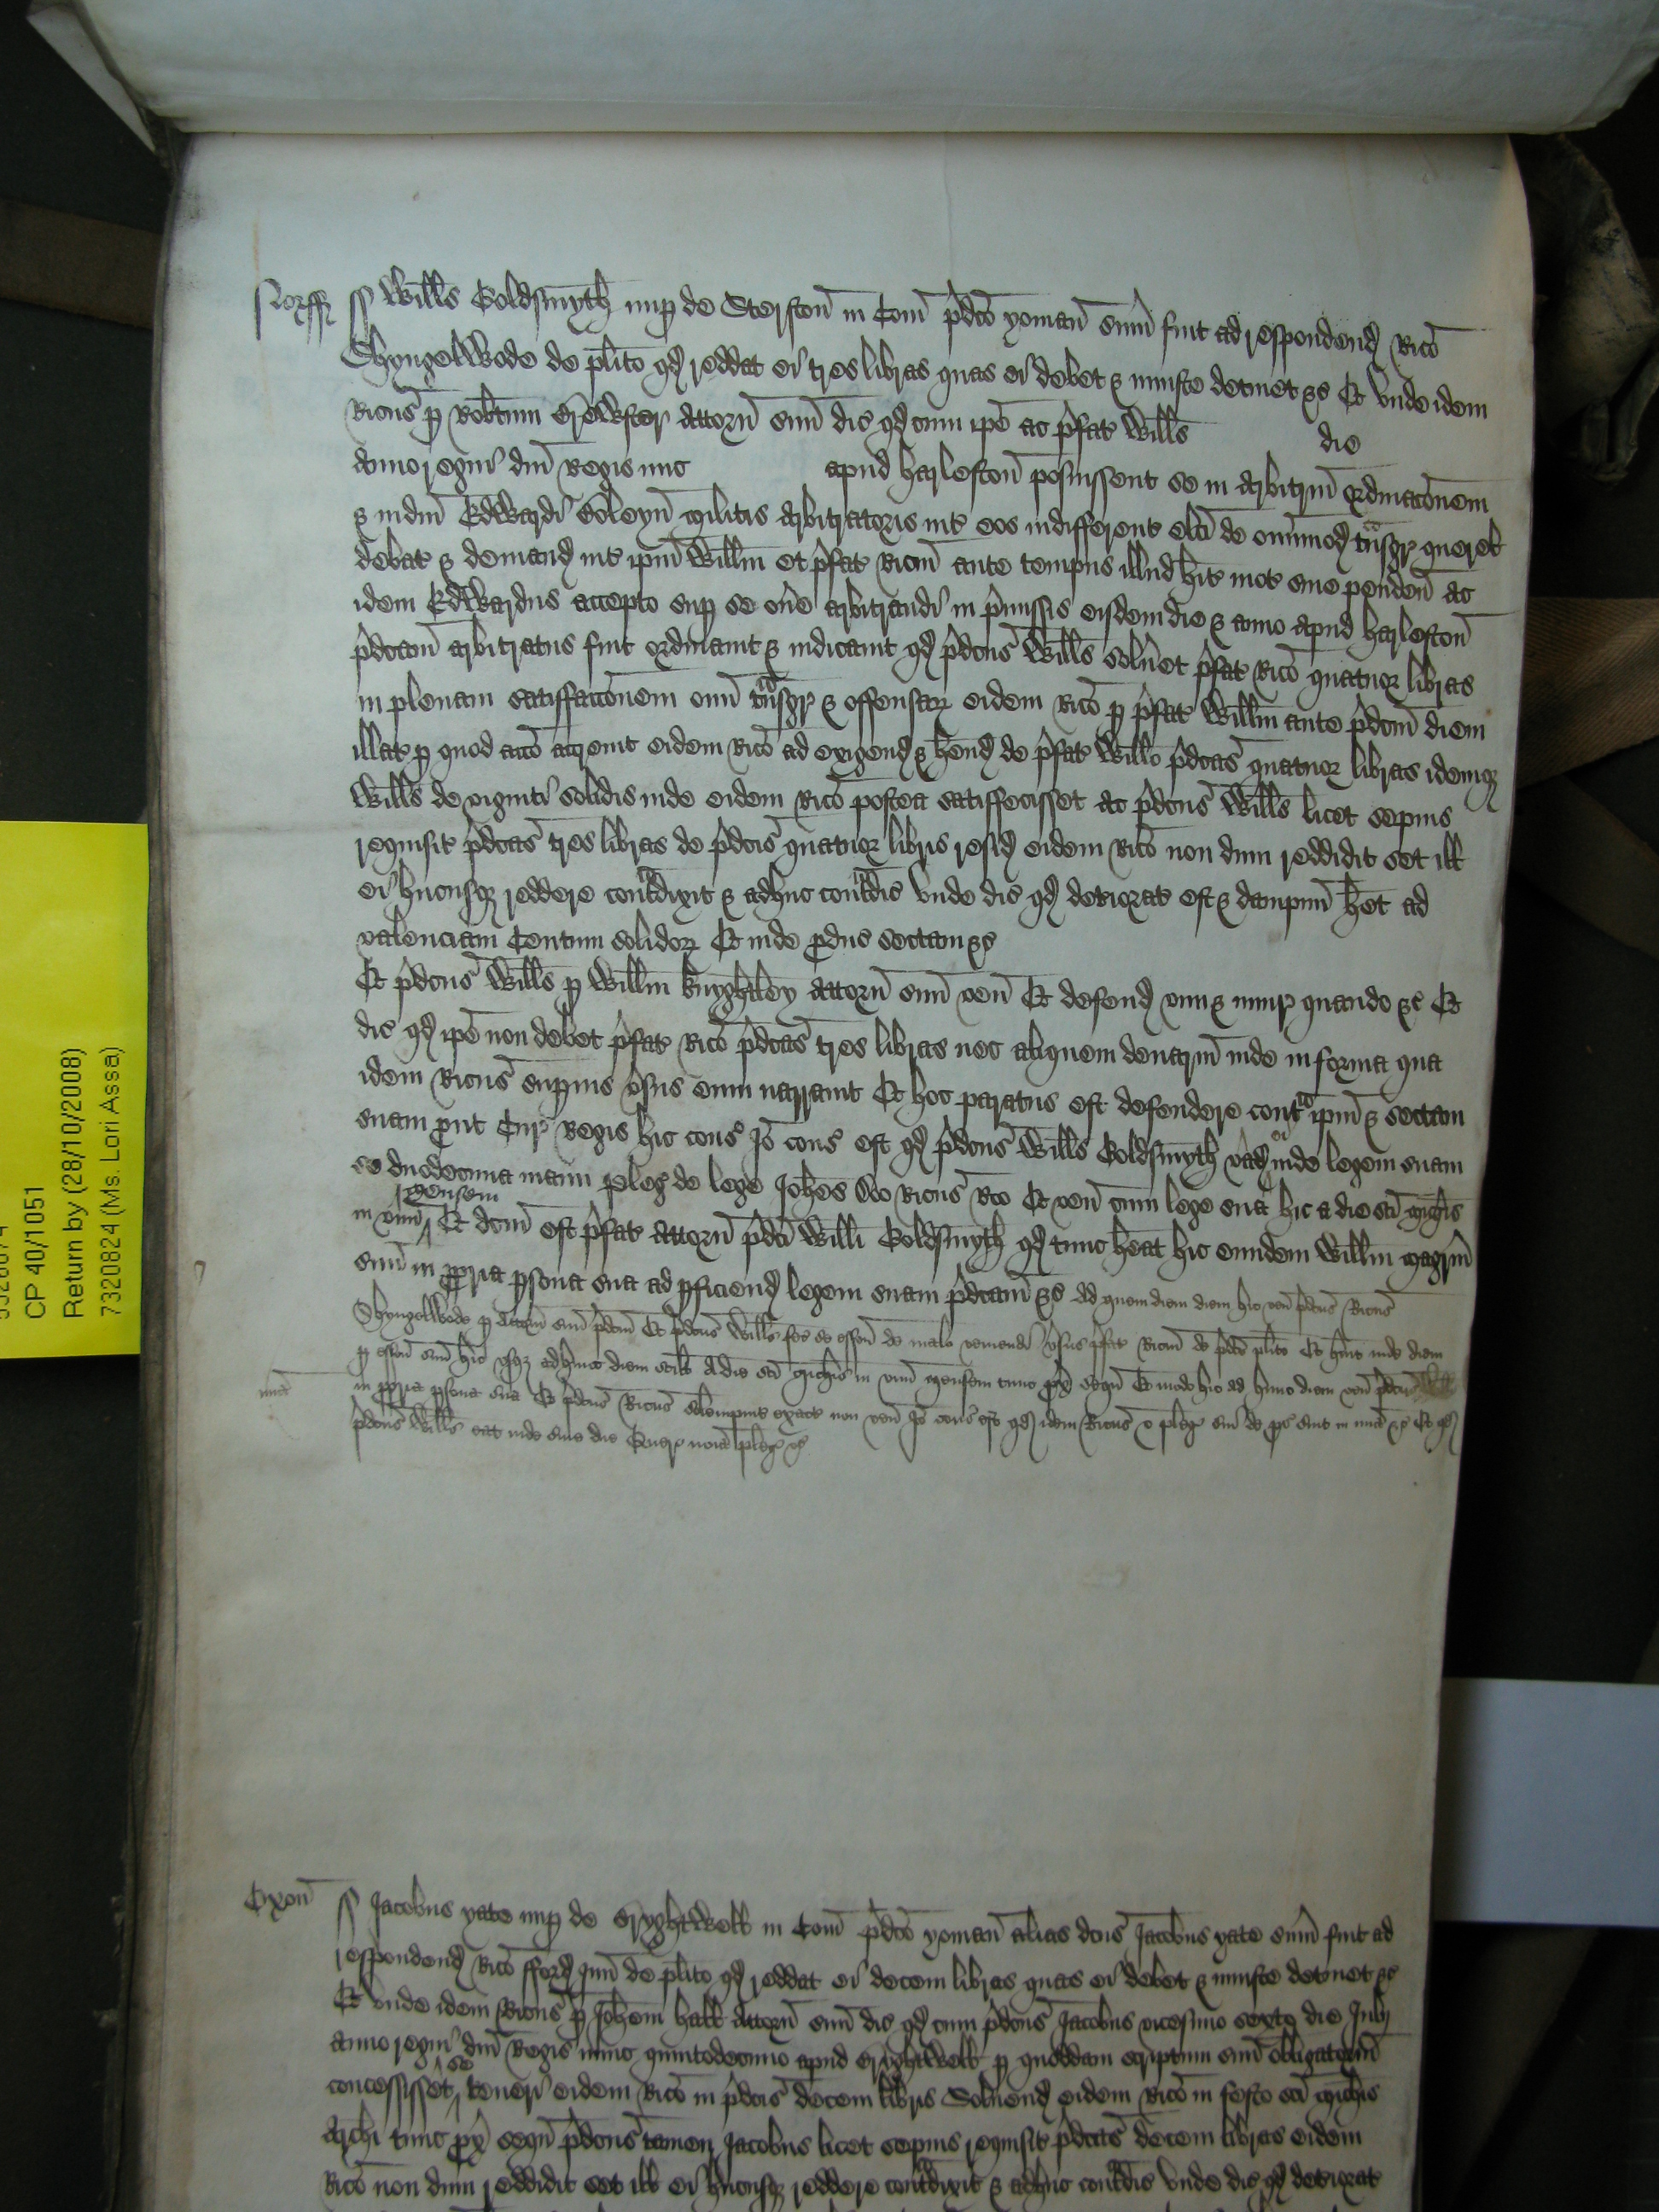 Norff ss Wills Goldsmyth nup de Sterston in Com pdco yoman sum fuit ad respondend Rico
Shyngelwode de plito qd reddat ei tres libras quas ei debet & iniuste detinet &c Et unde idem
Ricus p Robtum Brewster attorn suum dic qd cum ipe ac pfat Wills die
anno regni dni Regis nunc apud Harleston posuissent se in arbitrium ordinacionem
& iudm Edwardi Boleyn militis arbitratoris int eos indifferent elci de omimod tnsgr querel
debat & demand int ipm Willm et pfat Ricm ante tempus illud hit mot sive penden ac
idem Edwardus accepto sup se one arbitrandi in pmissis eisdem die & anno apud Harleston
pdcam arbitratus fuit ordinavit & iudicavit qd pdcus Wills solvet pfat Rico quatuor libras
in plenam satisfaccionem omn tnsgr & offensar eidem Rico p pfat Willm ante pdcm diem
illat p quod acco accrevit eidem Rico ad exigend & hend de pfat Willo pdcas quatuor libras idemq
Wills de viginti solidis inde eidem Rico postea satisfecisset ac pdcus Wills licet sepius
requisit pdcas tres libras de pdcis quatuor libris resid eidem Rico non dum reddidit set ill
ei hucusq reddere contradixit & adhuc contradic unde dic qd deteriorat est & dampnum het ad
valenciam Centum solidor Et inde pduc sectam &c
Et pdcus Wills p Willm Knyghtley attorn suum ven Et defend vim & iniur quando &c Et
dic qd ipe non debet pfat Rico pdcas tres libras nec aliquem denarium inde in forma qua
idem Ricus supius vsus eum narravit Et hoc paratus est defendere contra ipm & sectam
suam put Cur Regis hic cons Io cons est qd pdcus Wills Goldsmyth vad inde legem suam
se duodecima manu pleg de lege Johes Doo Ricus Roo Et ven cum lege sua hic a die sci Michis
in unum mensem Et dcm est pfat attorn pdci Willi Goldsmyth qd tunc heat hic eundem Willm magrm
suum in ppria psona sua ad pficiend legem suam pdcam &c Ad quem diem hic ven pdcus Ricus
Shyngelwode p attorn suum pdcm Et pdcus Wills fec se esson de malo veniendi vsus pfat Ricm de pdco plito Et huit inde diem
p esson suum hic usq ad hunc diem scilt a die sci Michis in unum mensem tunc px sequ Et modo hic ad hunc diem ven pdcus Wills
mia in ppria psona sua Et pdcus Ricus solempnit exact non ven Io cons est qd idem Ricus & pleg sui de ps sint in mia &c Et qd
pdcus Wills eat inde sine die Quer noia pleg &c
Oxon ss Jacobus yate nup de Bryghtwell in Com pdco yoman alias dcus Jacobus yate sum fuit ad
respondend Rico fford Jun de plito qd reddat ei decem libras quas ei debet & iniuste detinet &c
Et unde idem Ricus p Johem Hall attorn suum dic qd cum pdcus Jacobus vicesimo sexto die Julij
anno regni dni Regis nunc quintodecimo apud Bryghtwell p quoddam scriptum suum obligatorium
concessisset se teneri eidem Rico in pdcis decem libris Solvend eidem Rico in festo sci Michis
Archi tunc px sequ pdcus tamen Jacobus licet sepius requisit pdcas decem libras eidem
Rico non dum reddidit set ill ei hucusq reddere contradixit & adhuc contradic unde dic qd deteriorat
CP 40/1051
Return by (28/10/2008)
7320824 (Ms. Lori Assa)